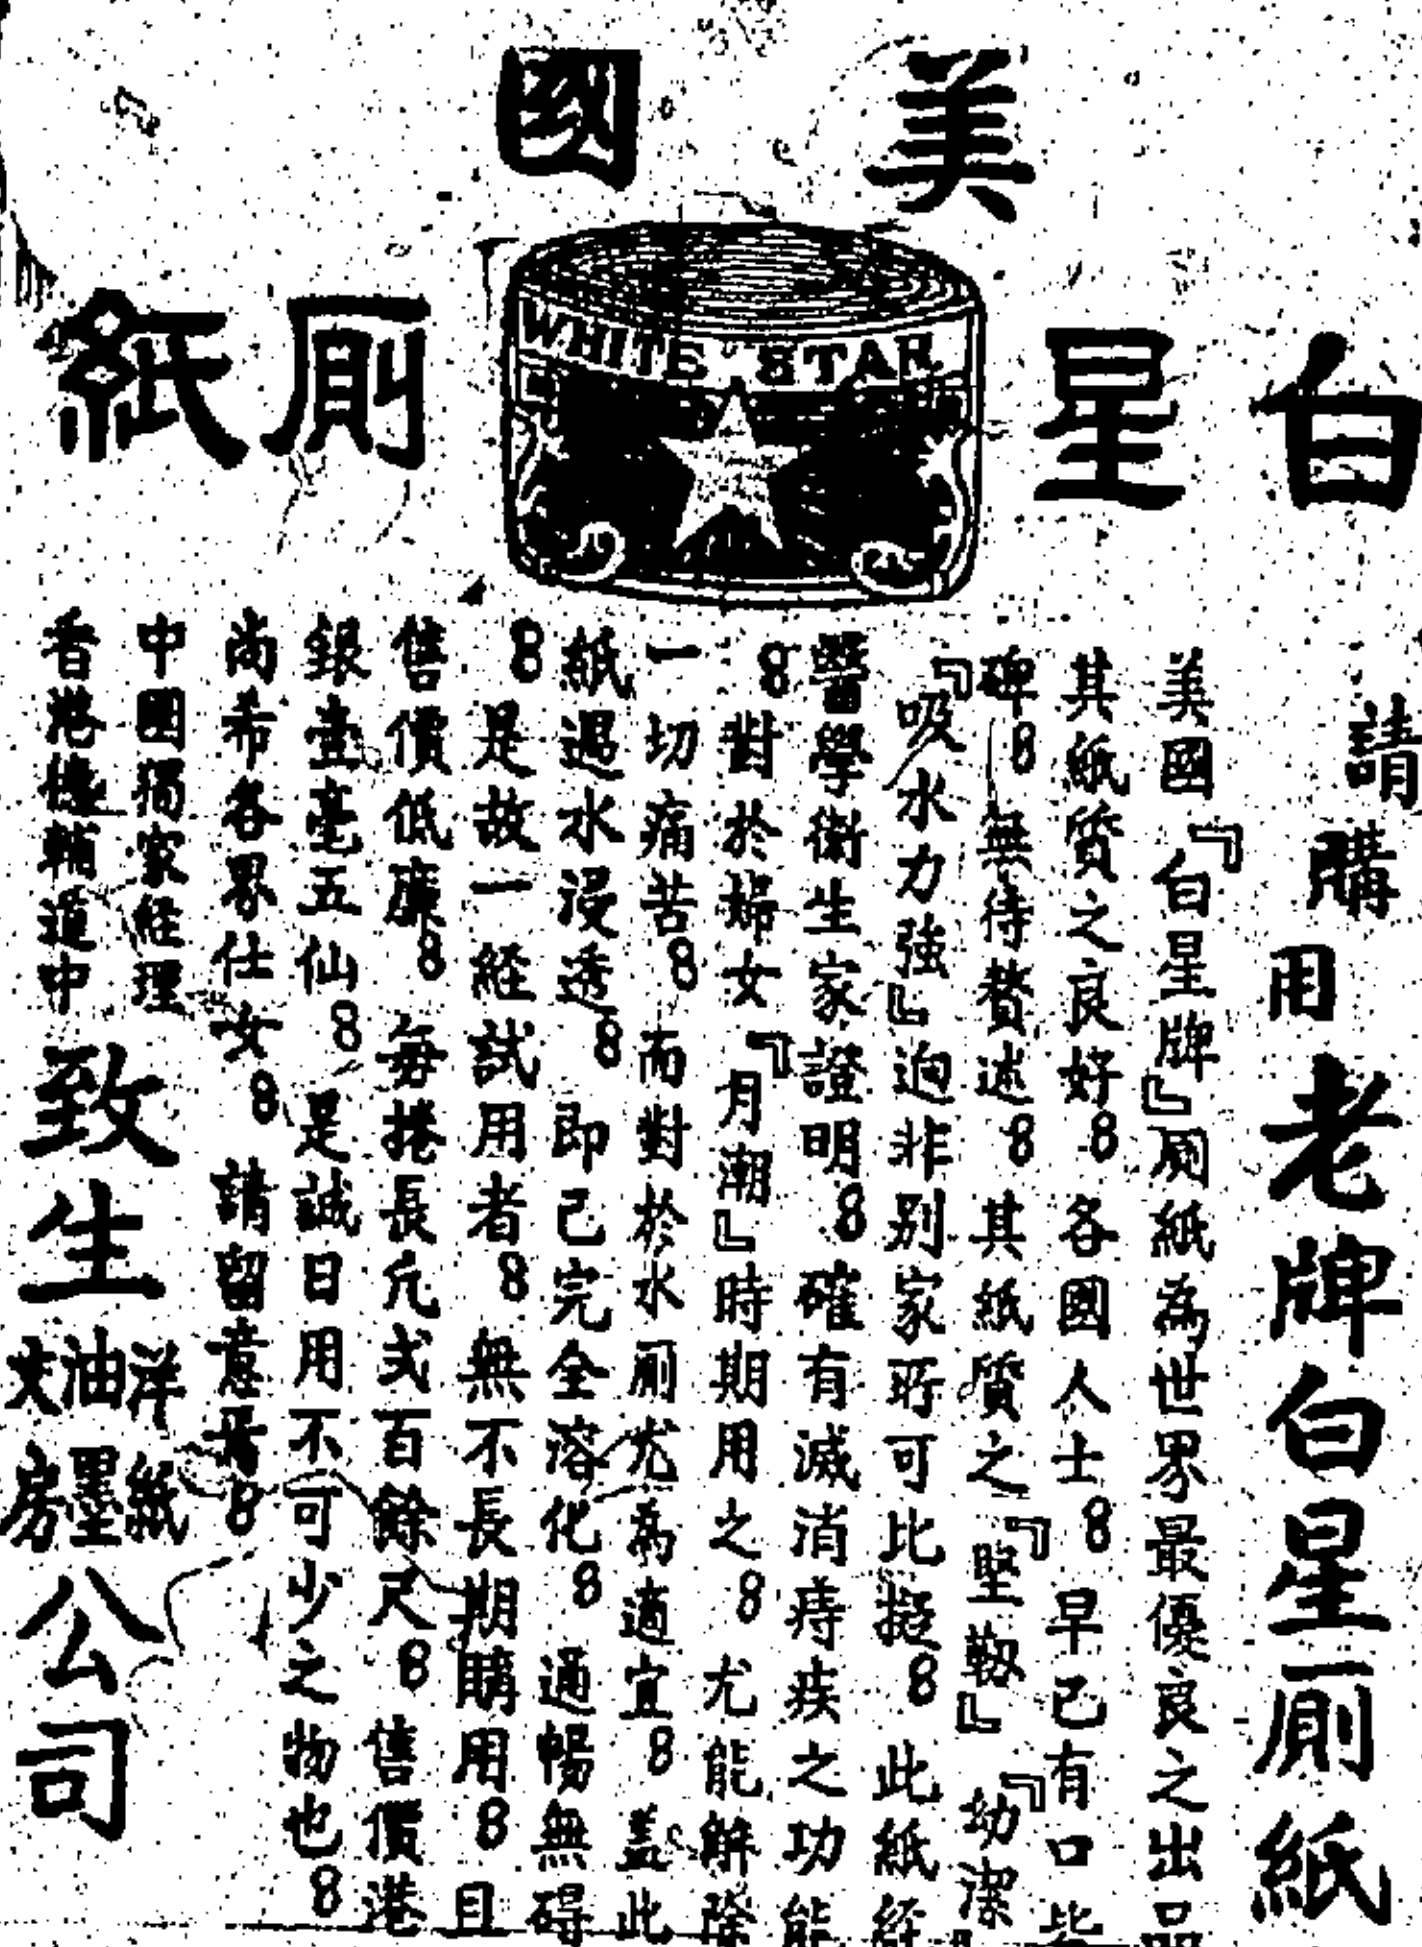 美國
白星廁紙
WHITE STAR
請購用老牌白星廁紙
美國『白星牌』廁紙為世界最優良之出品
其紙質之良好8各國人士8早已有口皆
碑8無待贅述8其紙質之『堅韌』『幼潔』
『吸水力強』迥非別家所可比擬8此紙經
醫學衛生家證明8確有滅消痔疾之功能
8對於婦女『月潮』時期用之8尤能解除
一切痛苦8而對於水廁尤為適宜8蓋此
紙遇水浸透8即己完全溶化8通暢無碍
8是故一経試用者8無不長期購用8且
售價低廉8每捲長凢弍百餘尺8售價港
銀壹毫五仙8是誠日用不可少之物也8
尚希各界仕女8請留意焉8
中國獨家経理
香港德輔道中
致生洋紙油墨文房公司